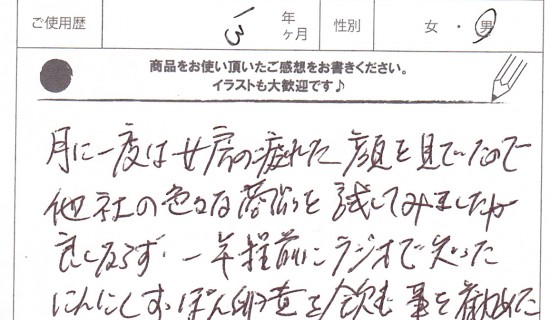 ご使用歴 1 年
3 ヶ月 性別 女 ・ 男
商品をお使い頂いたご感想をお書きください。
イラストも大歓迎です♪
月に一度は女房の疲れた顔を見ていたので
他社の色々な商品を試してみましたが
良くならず、一年程前にラジオで知った
にんにくすっぽん卵黄を飲む事を勧めた